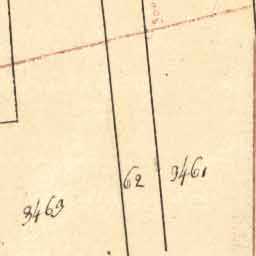 62
3461
3463